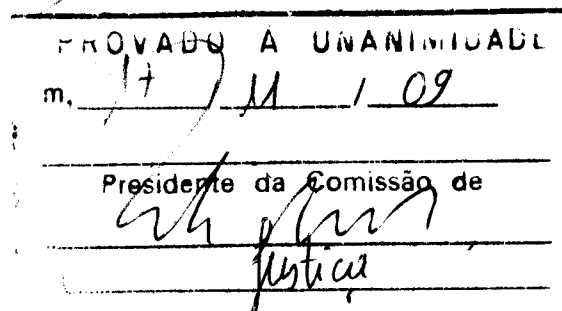 PROVADO A UNANIMIDADE
m, 17 / 11 / 09
Presidente da Comissão de
Justiça